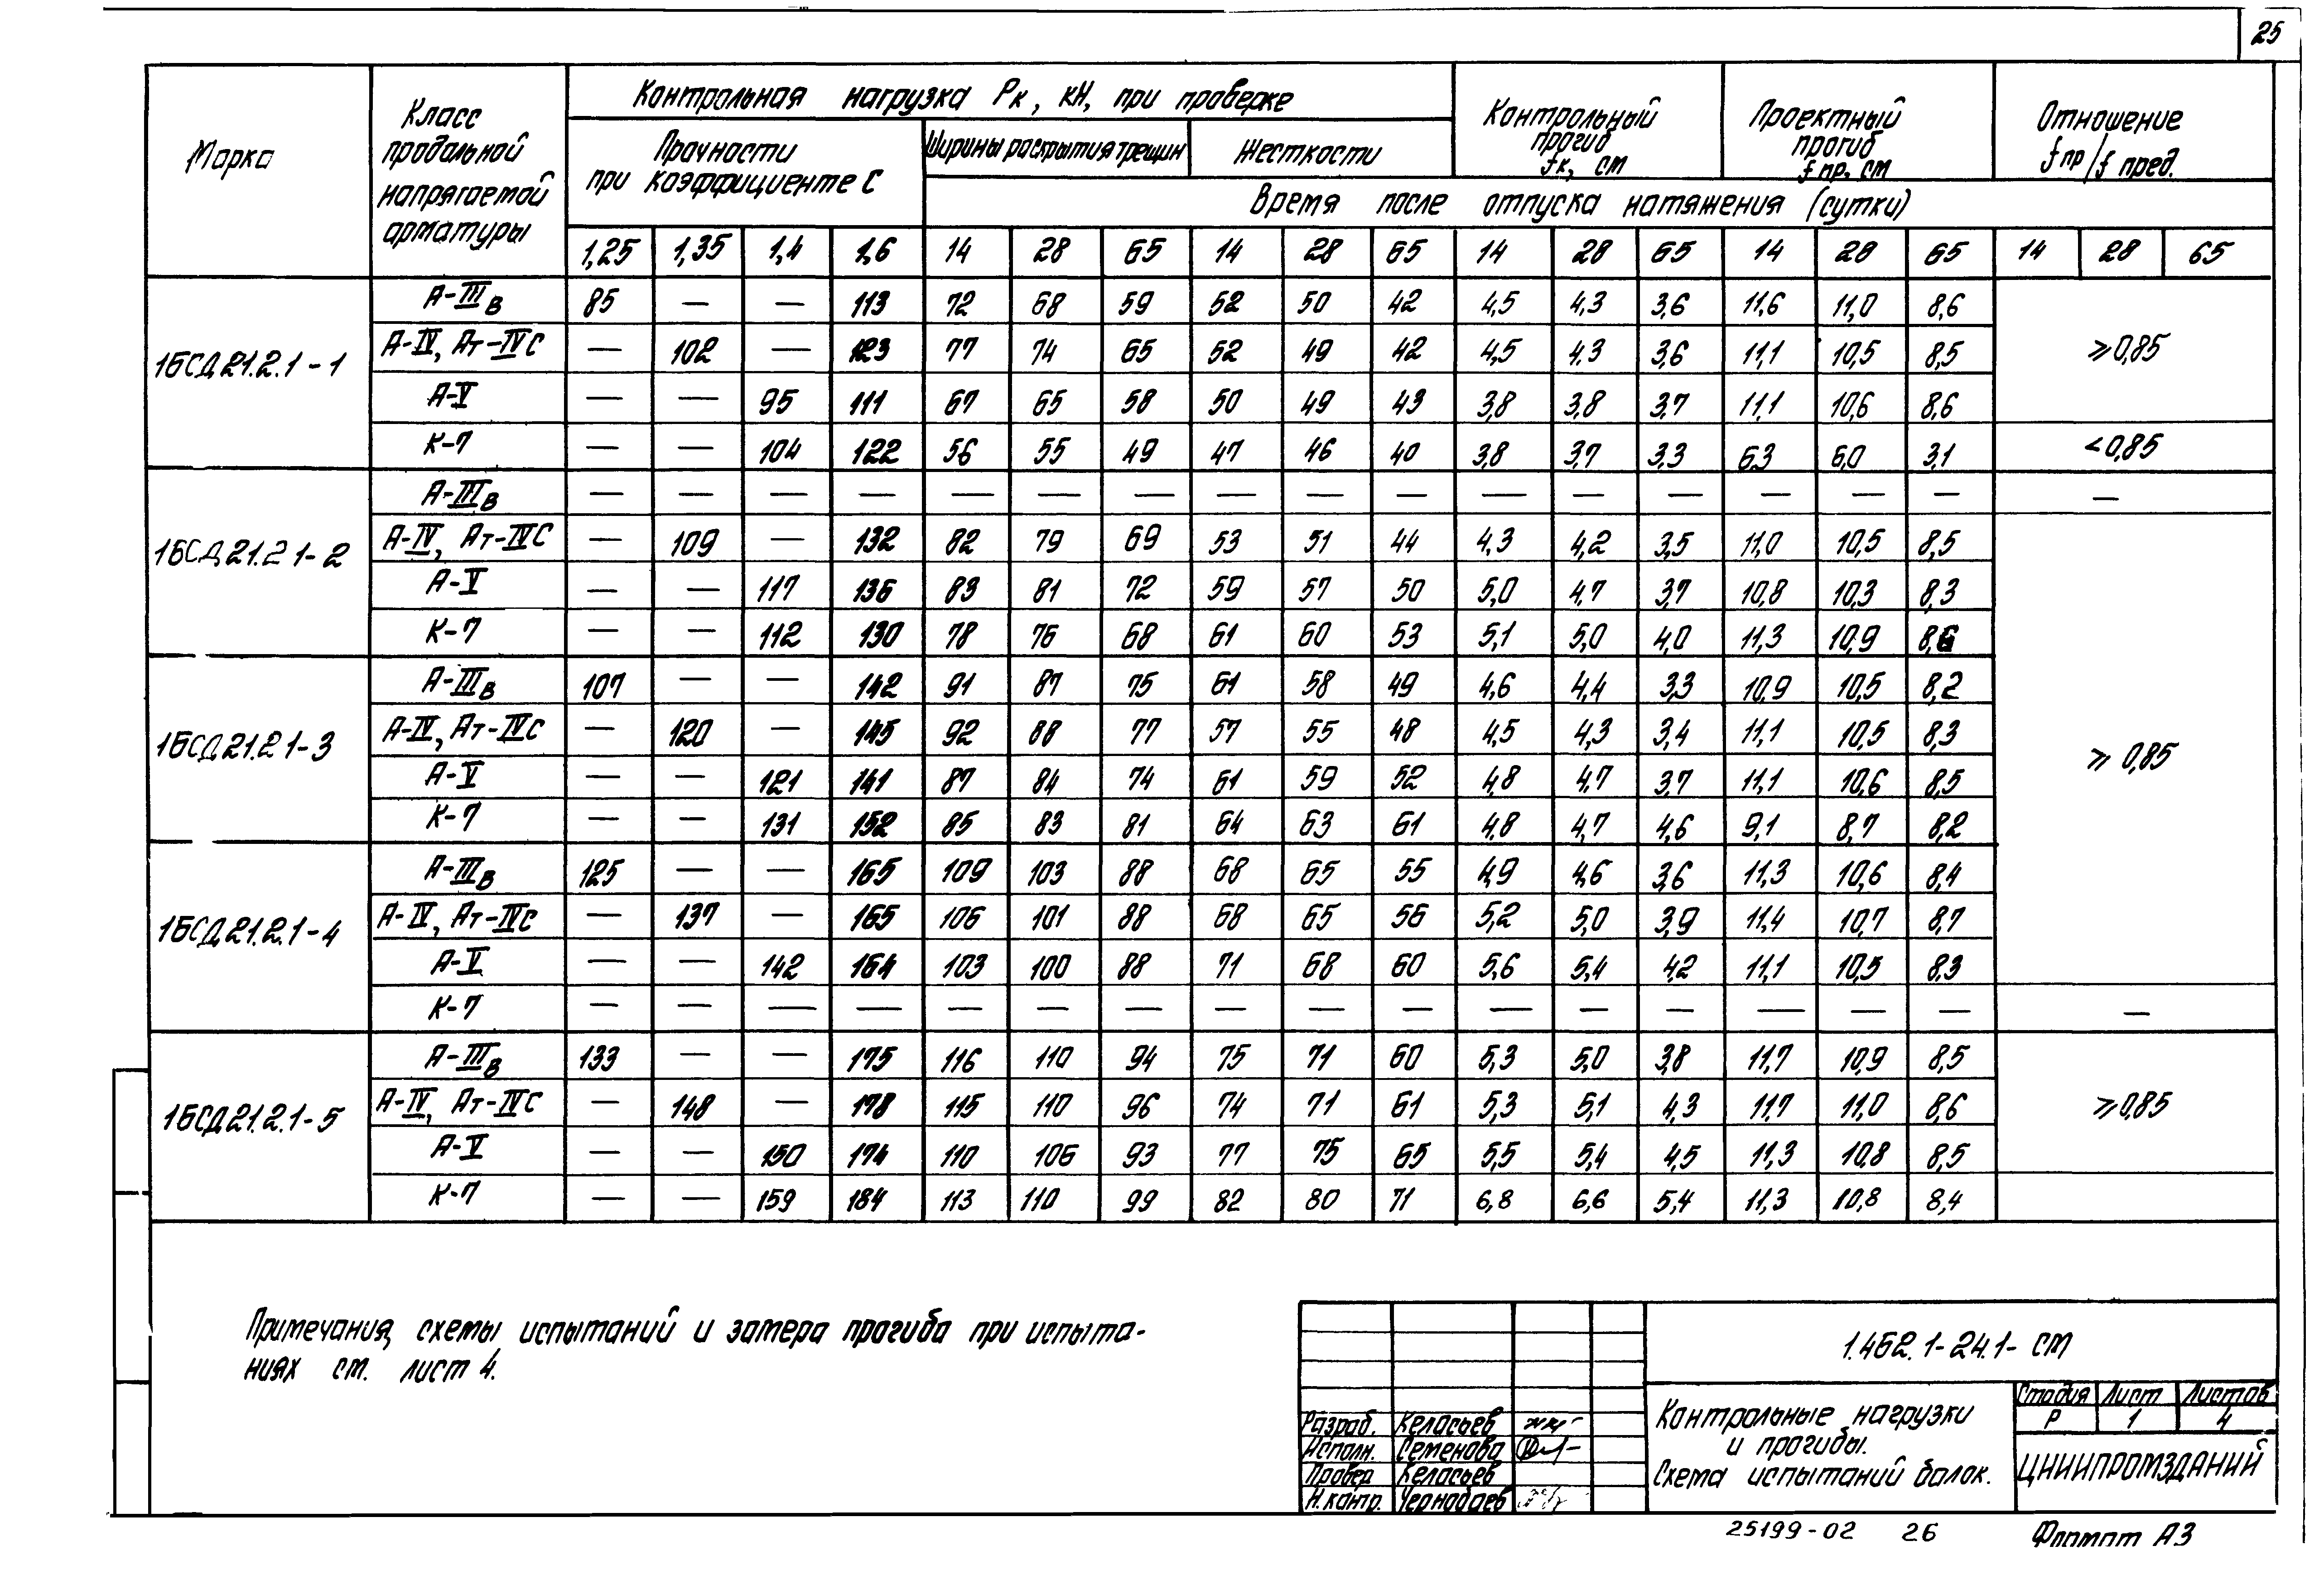 25
Марка
Класс продольной напрягаемой арматуры
Контрольная нагрузка Рк, кН, при проверке
Прочности при коэффициенте С
Ширины раскрытия трещин
Жесткости
Контрольный прогиб fк, см
Проектный прогиб fпр, см
Отношение fпр/fпред.
Время после отпуска натяжения (сутки)
1,25 1,35 1,4 1,6 14 28 65 14 28 65 14 28 65 14 28 65 14 28 65
1БСД21.2.1-1
А-IIIв 85 — — 113 72 68 59 52 50 42 4,5 4,3 3,6 11,6 11,0 8,6
А-IV, Ат-IVС — 102 — 123 77 74 65 52 49 42 4,5 4,3 3,6 11,1 10,5 8,5 ⩾0,85
А-V — — 95 111 67 65 58 50 49 43 3,8 3,8 3,7 11,1 10,6 8,6
К-7 — — 104 122 56 55 49 47 46 40 3,8 3,7 3,3 6,3 6,0 3,1 <0,85
1БСД21.2 1-2
А-IIIв — — — — — — — — — — — — — — — — —
А-IV, Ат-IVС — 109 — 132 82 79 69 53 51 44 4,3 4,2 3,5 11,0 10,5 8,5
А-V — — 117 136 83 81 72 59 57 50 5,0 4,7 3,7 10,8 10,3 8,3
К-7 — — 112 130 78 76 68 61 60 53 5,1 5,0 4,0 11,3 10,9 8,6
1БСД21.2 1-3
А-IIIв 107 — — 142 91 87 75 61 58 49 4,6 4,4 3,3 10,9 10,5 8,2
А-IV, Ат-IVС — 120 — 145 92 88 77 57 55 48 4,5 4,3 3,4 11,1 10,5 8,3
А-V — — 121 141 87 84 74 61 59 52 4,8 4,7 3,7 11,1 10,6 8,5 ⩾ 0,85
К-7 — — 131 152 85 83 81 64 63 61 4,8 4,7 4,6 9,1 8,7 8,2
1БСД21.2.1-4
А-IIIв 125 — — 165 109 103 88 68 65 55 4,9 4,6 3,6 11,3 10,6 8,4
А-IV, Ат-IVС — 137 — 165 106 101 88 68 65 56 5,2 5,0 3,9 11,4 10,7 8,7
А-V — — 142 164 103 100 88 71 68 60 5,6 5,4 4,2 11,1 10,5 8,3
К-7 — — — — — — — — — — — — — — — — —
1БСД21.2.1-5
А-IIIв 133 — — 175 116 110 94 75 71 60 5,3 5,0 3,8 11,7 10,9 8,5
А-IV, Ат-IVС — 148 — 178 115 110 96 74 71 61 5,3 5,1 4,3 11,7 11,0 8,6 ⩾0,85
А-V — — 150 174 110 106 93 77 75 65 5,5 5,4 4,5 11,3 10,8 8,5
К-7 — — 159 184 113 110 99 82 80 71 6,8 6,6 5,4 11,3 10,8 8,4
Примечания, схемы испытаний и замера прогиба при испыта-
ниях см. лист 4.
1.462.1-24.1- СМ
Разраб. Келасьев
Исполн. Семенова
Провер Келасьев
Н.контр. Чернобаев
Контрольные нагрузки
и прогибы.
Схема испытаний балок.
Стадия Лист Листов
Р 1 4
ЦНИИПРОМЗДАНИЙ
25199-02 26
Формат А3